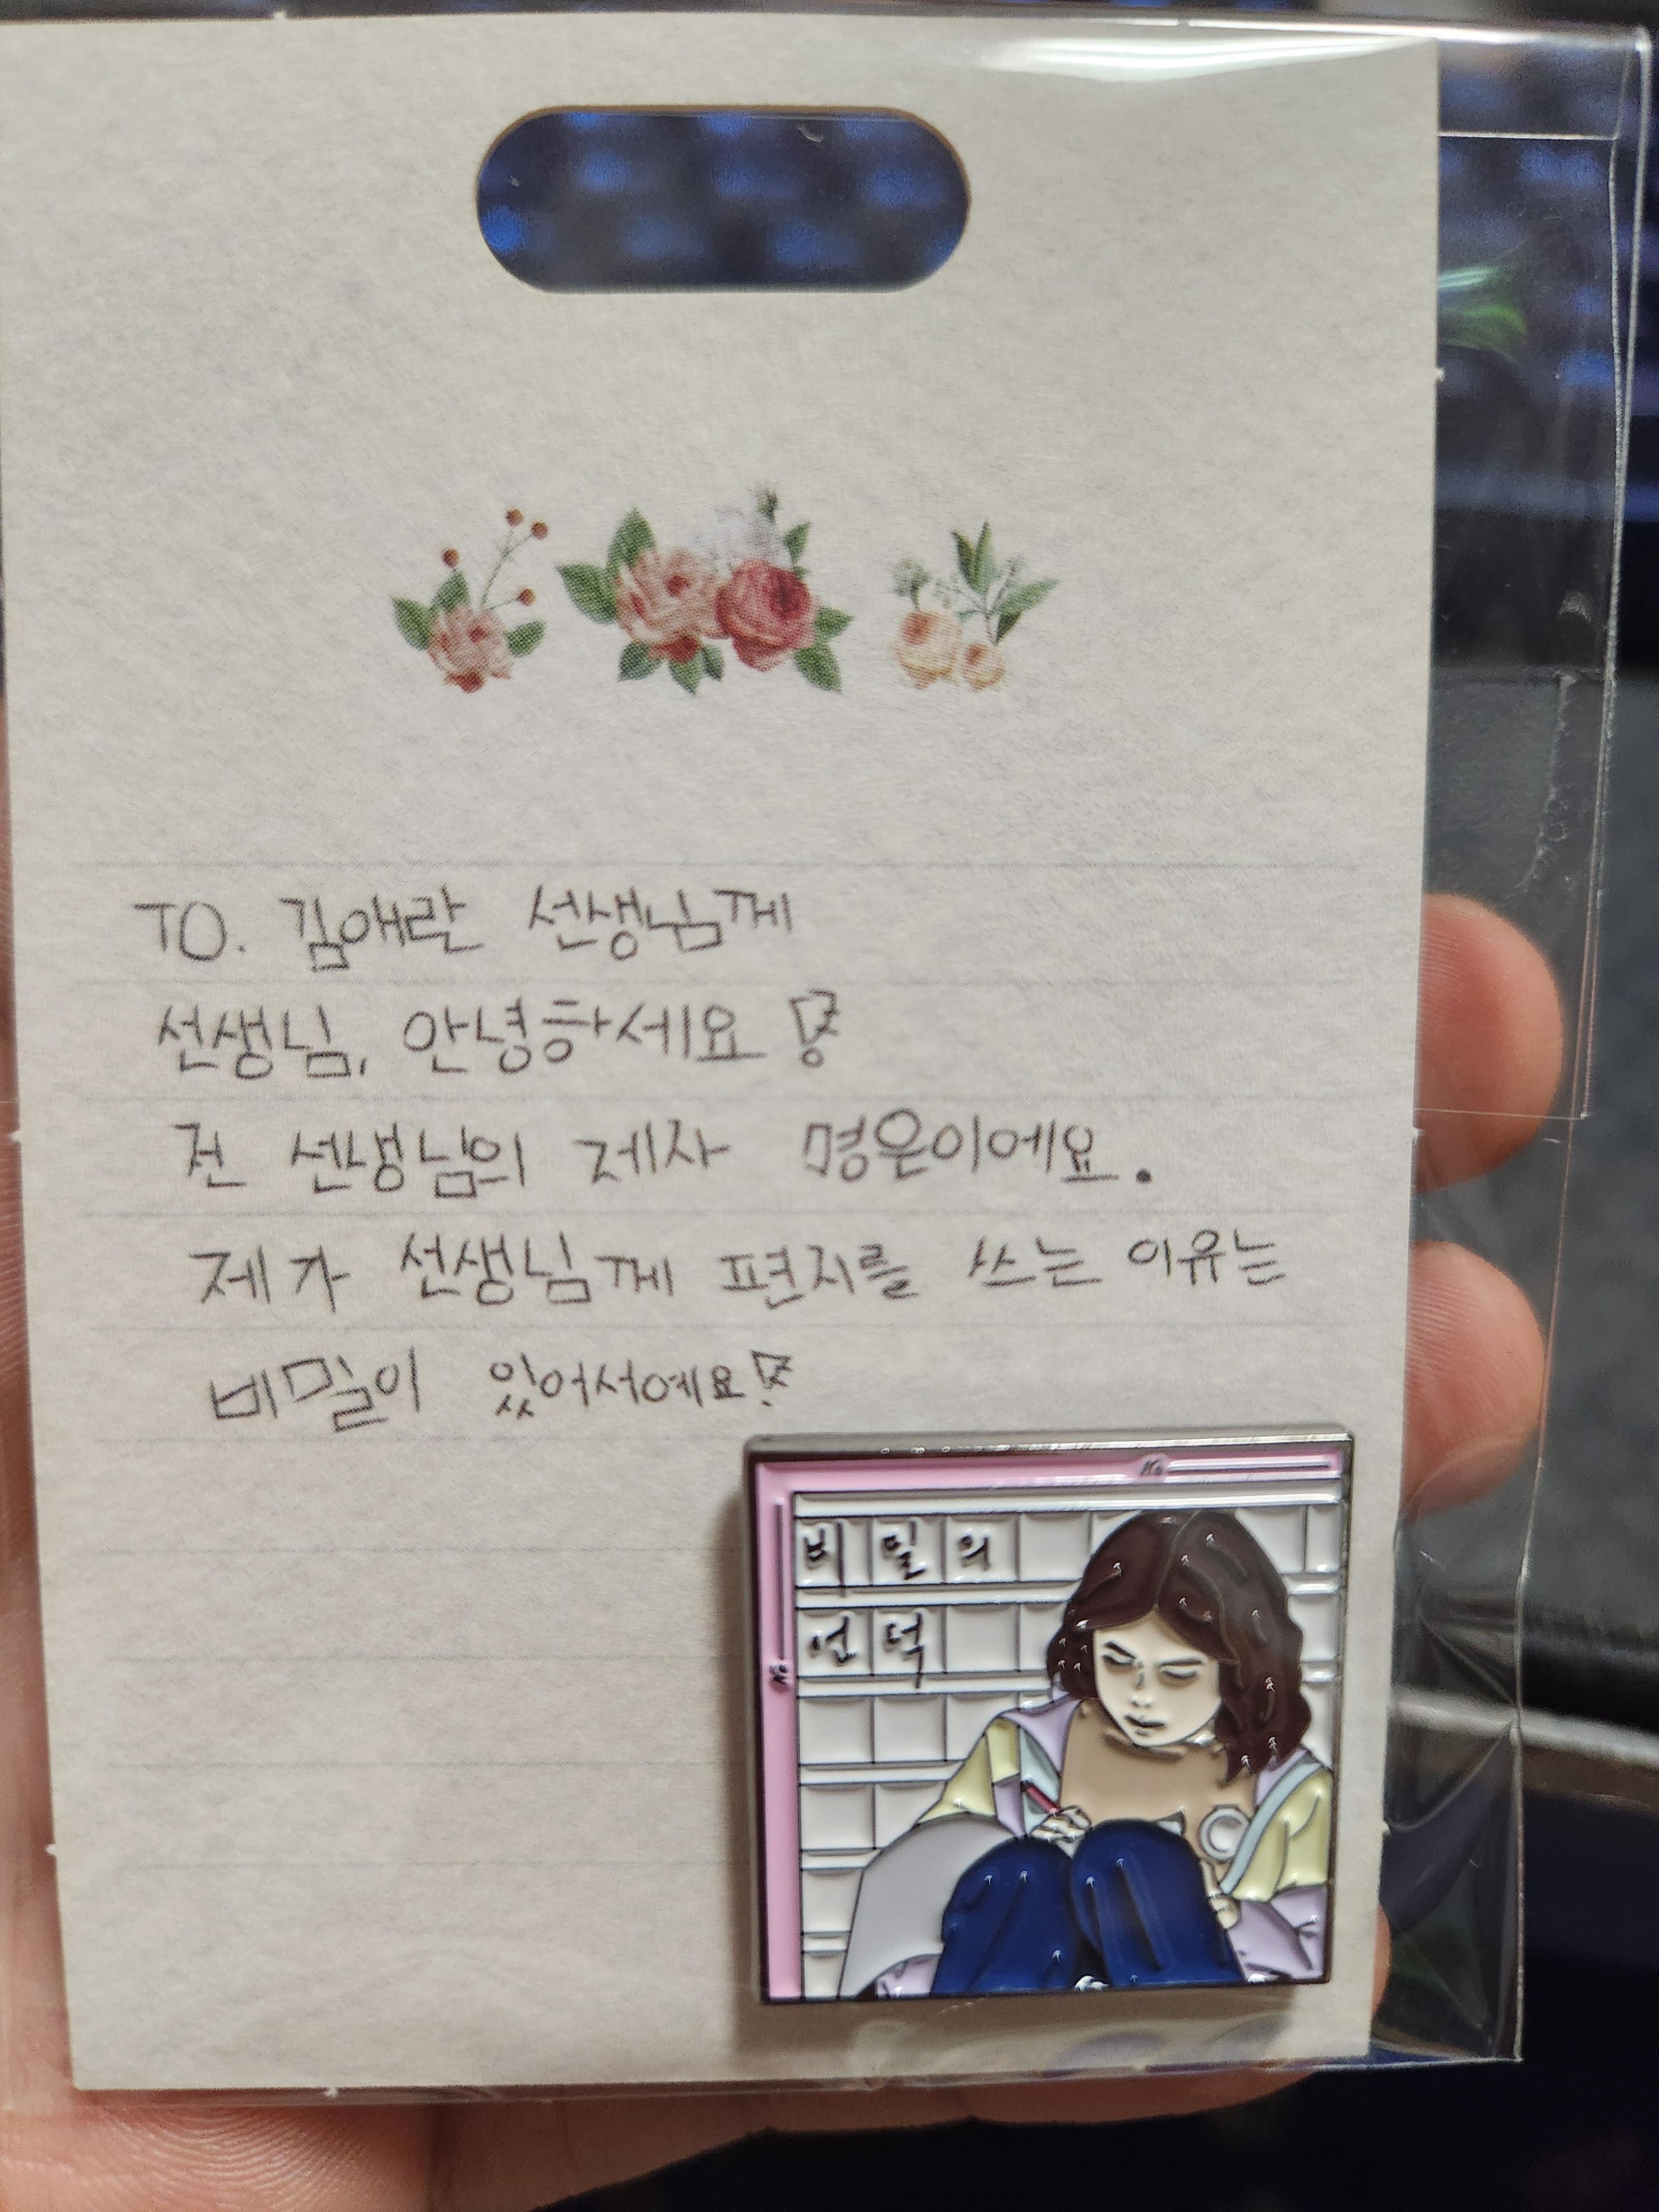 TO. 김애란 선생님께
선생님, 안녕하세요!
전 선생님의 제자 명은이에요.
제가 선생님께 편지를 쓰는 이유는
비밀이 있어서예요!
No
No
비밀의
언덕